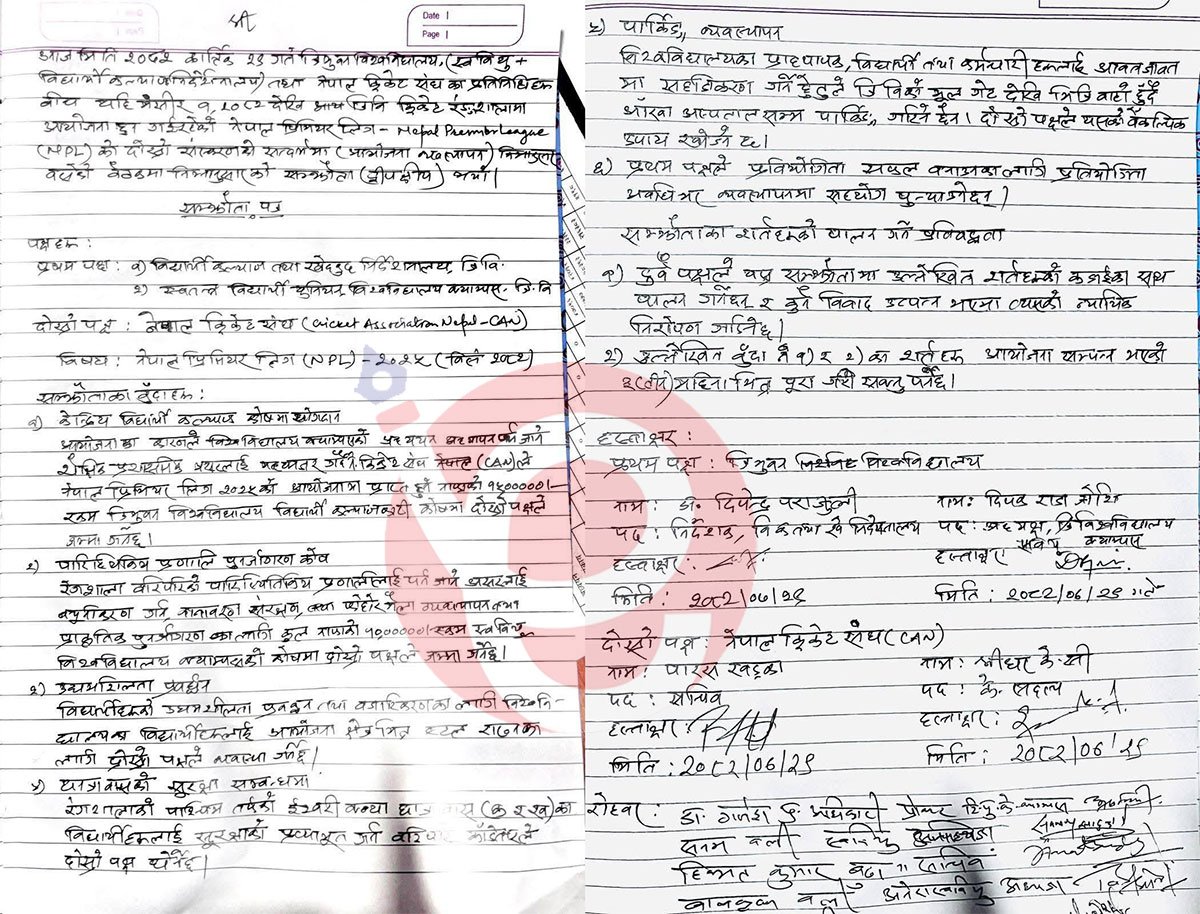 श्री
Date |
Page |
आज मिति २०८२ कार्तिक २६ गते त्रिभुवन विश्वविद्यालय, (स्ववियु +
विद्यार्थी कल्याण निर्देशनालय) तथा नेपाल क्रिकेट संघ का प्रतिनिधिहरु
बीच यहि मंसीर १, २०८२ देखि आयोजना त्रि.वि क्रिकेट रंङ्गशालामा
आयोजना हुन गईरहेको नेपाल प्रिमियर लिग - Nepal Premier League
(NPL) को दोस्रो संस्करणको सन्दर्भमा (आयोजना व्यवस्थापन) निम्नानुसार
बसेको बैठकमा निम्नानुसारको सम्झौता (द्वीपक्षीय) भयो।
सम्झौता पत्र
पक्षहरु :
प्रथम पक्ष : १) विद्यार्थी कल्याण तथा खेलकुद निर्देशनालय, त्रि.वि.
२) स्वतन्त्र विद्यार्थी युनियन, विश्वविद्यालय क्याम्पस, त्रि.वि
दोस्रो पक्ष : नेपाल क्रिकेट संघ (Cricket Association Nepal - CAN)
विषय : नेपाल प्रिमियर लिग (NPL) - २०२५ (वि.सं २०८२)
सम्झौताका बुँदाहरु :
१) केन्द्रिय विद्यार्थी कल्याण कोषमा योगदान
आयोजनाका कारणले विश्वविद्यालय क्याम्पसको पठनपाठनमा पर्न जाने
शैक्षिक प्रशासनिक असरलाई मध्यनजर गर्दै क्रिकेट संघ नेपाल (CAN) ले
नेपाल प्रिमियर लिग २०२५ को आयोजनामा प्राप्त हुने नाफाको १५०००००।-
रकम त्रिभुवन विश्वविद्यालय विद्यार्थी कल्याणकारी कोषमा दोस्रो पक्षले
जम्मा गर्नेछ।
२) पारिस्थितिकीय प्रणाली पुनर्जागरण कोष
रंगशाला वरिपरिको पारिस्थितिकीय प्रणालीलाई पर्न जाने असरलाई
न्यूनीकरण गर्न, वातावरण संरक्षण तथा फोहोर मैला व्यवस्थापन तथा
प्राकृतिक पुनर्जागरण का लागि कुल नाफाको १०००००० रकम स्ववियु
विश्वविद्यालय क्याम्पसको कोषमा दोस्रो पक्षले जम्मा गर्नेछ।
३) उद्यमशिलता प्रवर्द्धन
विद्यार्थीहरुको उद्यमशीलता प्रवर्द्धन तथा बजारिकरणका लागि विश्ववि-
द्यालयका विद्यार्थीहरुलाई आयोजना क्षेत्र भित्र स्टल राख्नका
लागि दोस्रो पक्षले व्यवस्था गर्नेछ।
४) छात्रावासको सुरक्षा सम्बन्धमा
रंगशालाको पश्चिम तर्फको ईश्वरी कन्या छात्रावास (क र ख) का
विद्यार्थीहरुलाई सुरक्षाको प्रत्याभूत गर्न वरिपरि
दोस्रो पक्ष गर्नेछ।
५) पार्किङ्ग व्यवस्थापन
विश्वविद्यालयका प्राध्यापक, विद्यार्थी तथा कर्मचारी हरुलाई आवतजावत
मा सहजिकरण गर्ने हेतुले त्रि.विको मूल गेट देखि भित्रि बाटो हुँदै
आँखा अस्पताल सम्म पार्किङ्ग गरिने छैन। दोस्रो पक्षले यसको वैकल्पिक
उपाय खोज्ने छ।
६) प्रथम पक्षले प्रतियोगिता सफल बनाउनका लागि प्रतियोगिता
अवधिभर व्यवस्थापनमा सहयोग पुर्‍याउनेछन्।
सम्झौताका शर्तहरुको पालना गर्ने प्रतिबद्धता
१) दुवै पक्षले यस सम्झौतामा उल्लेखित शर्तहरुको कडाईका साथ
पालना गर्नेछन् र कुनै विवाद उत्पन्न भएमा त्यसको न्यायिक
निरोपण गरिनेछ।
२) उल्लेखित बुँदा नं १) र २) का शर्तहरु आयोजना सम्पन्न भएको
३ (तीन) महिना भित्र पूरा गरी सक्नु पर्नेछ।
हस्ताक्षर :
प्रथम पक्ष : त्रिभुवन विश्वविद्यालय
नाम : डा. दिपेन्द्र पराजुली
पद : निर्देशक, वि.क तथा खे निर्देशनालय
हस्ताक्षर :
मिति : २०८२/०७/२६
नाम : दिपक राज जोशि
पद : अध्यक्ष, त्रि विश्वविद्यालय
क्याम्पस
हस्ताक्षर :
मिति : २०८२/०७/२६ गते
दोस्रो पक्ष : नेपाल क्रिकेट संघ (CAN)
नाम : पारस खड्का
पद : सचिव
हस्ताक्षर :
मिति : २०८२/०७/२६
नाम : के.सी
पद : के. सदस्य
हस्ताक्षर :
मिति : २०८२/०७/२६
रोहवर :